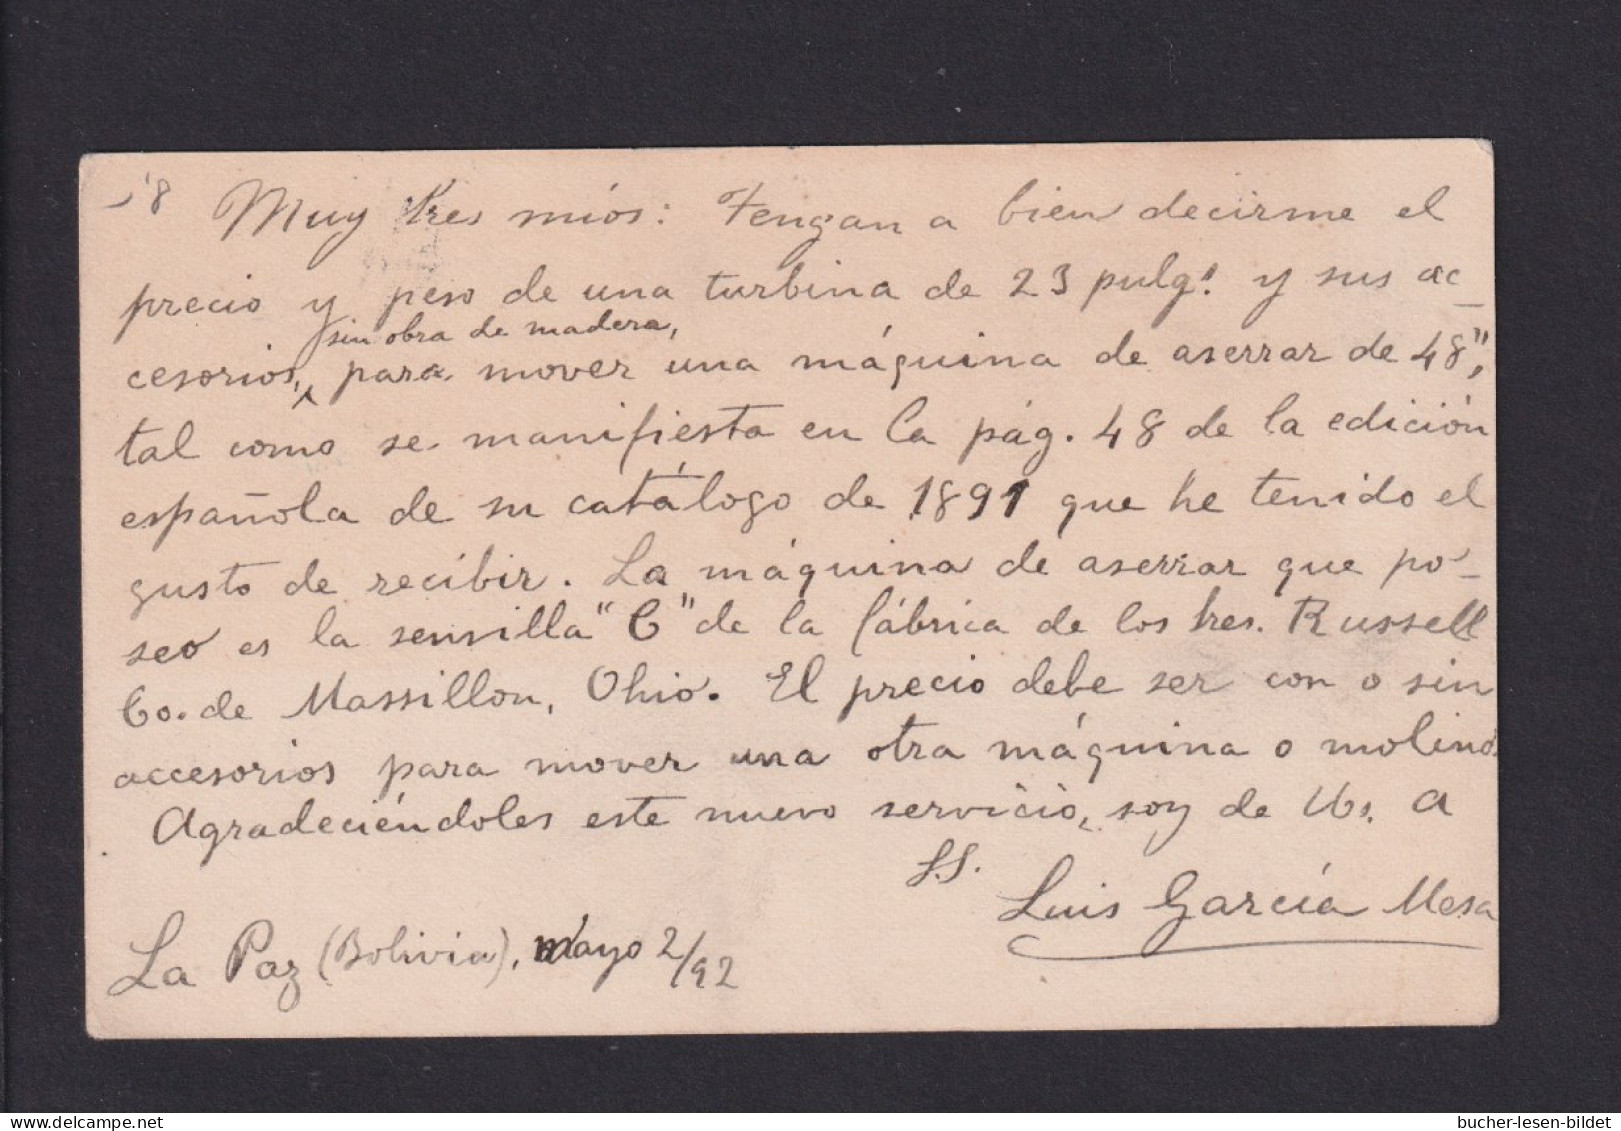 '8 Muy Sres míos: Tengan a bien decirme el
precio y peso de una turbina de 23 pulgs. y sus ac-
sin obra de madera,
cesorios, para mover una máquina de aserrar de 48",
tal como se manifiesta en la pág. 48 de la edición
española de su catálogo de 1891 que he tenido el
gusto de recibir. La máquina de aserrar que po-
seo es la senvilla "C" de la fábrica de los Sres. Russell
Co. de Massillon, Ohio. El precio debe ser con o sin
accesorios para mover una otra máquina o molino.
Agradeciéndoles este nuevo servicio, soy de Us. A
S.S.
Luis García Mesa
La Paz (Bolivia), Mayo 2/92
bucher-lesen-bildet